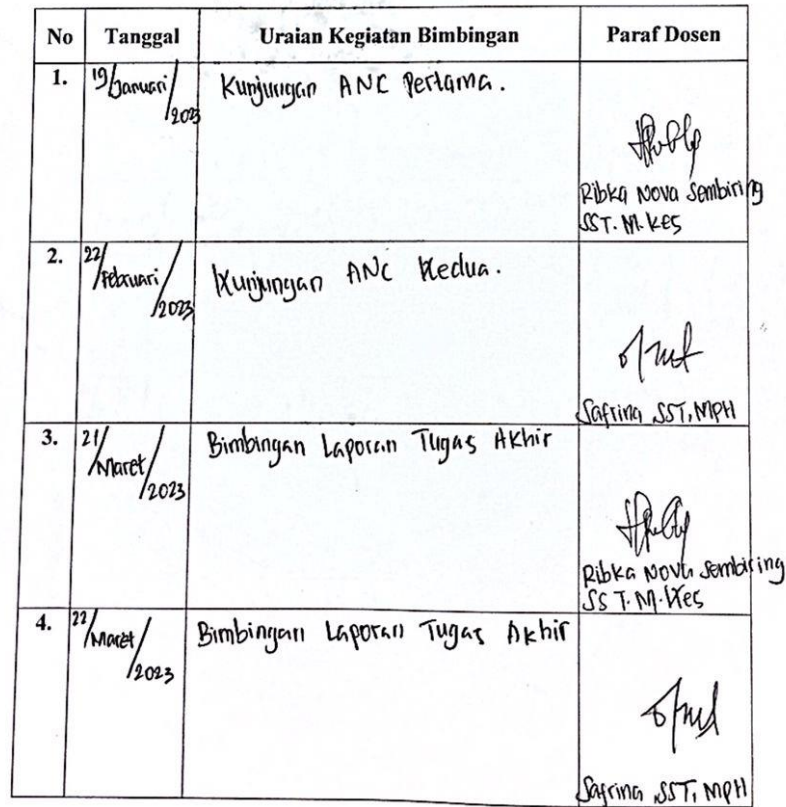 No Tanggal Uraian Kegiatan Bimbingan Paraf Dosen
1. 19/Januari/2023 Kunjungan ANC Pertama.
Ribka Nova Sembiring
SST. M. Kes
2. 22/Februari/2023 Kunjungan ANC Kedua.
Safrina SST, MPH
3. 21/Maret/2023 Bimbingan Laporan Tugas Akhir
Ribka Nova Sembiring
SST. M. Kes
4. 22/Maret/2023 Bimbingan Laporan Tugas Akhir
Safrina SST, MPH